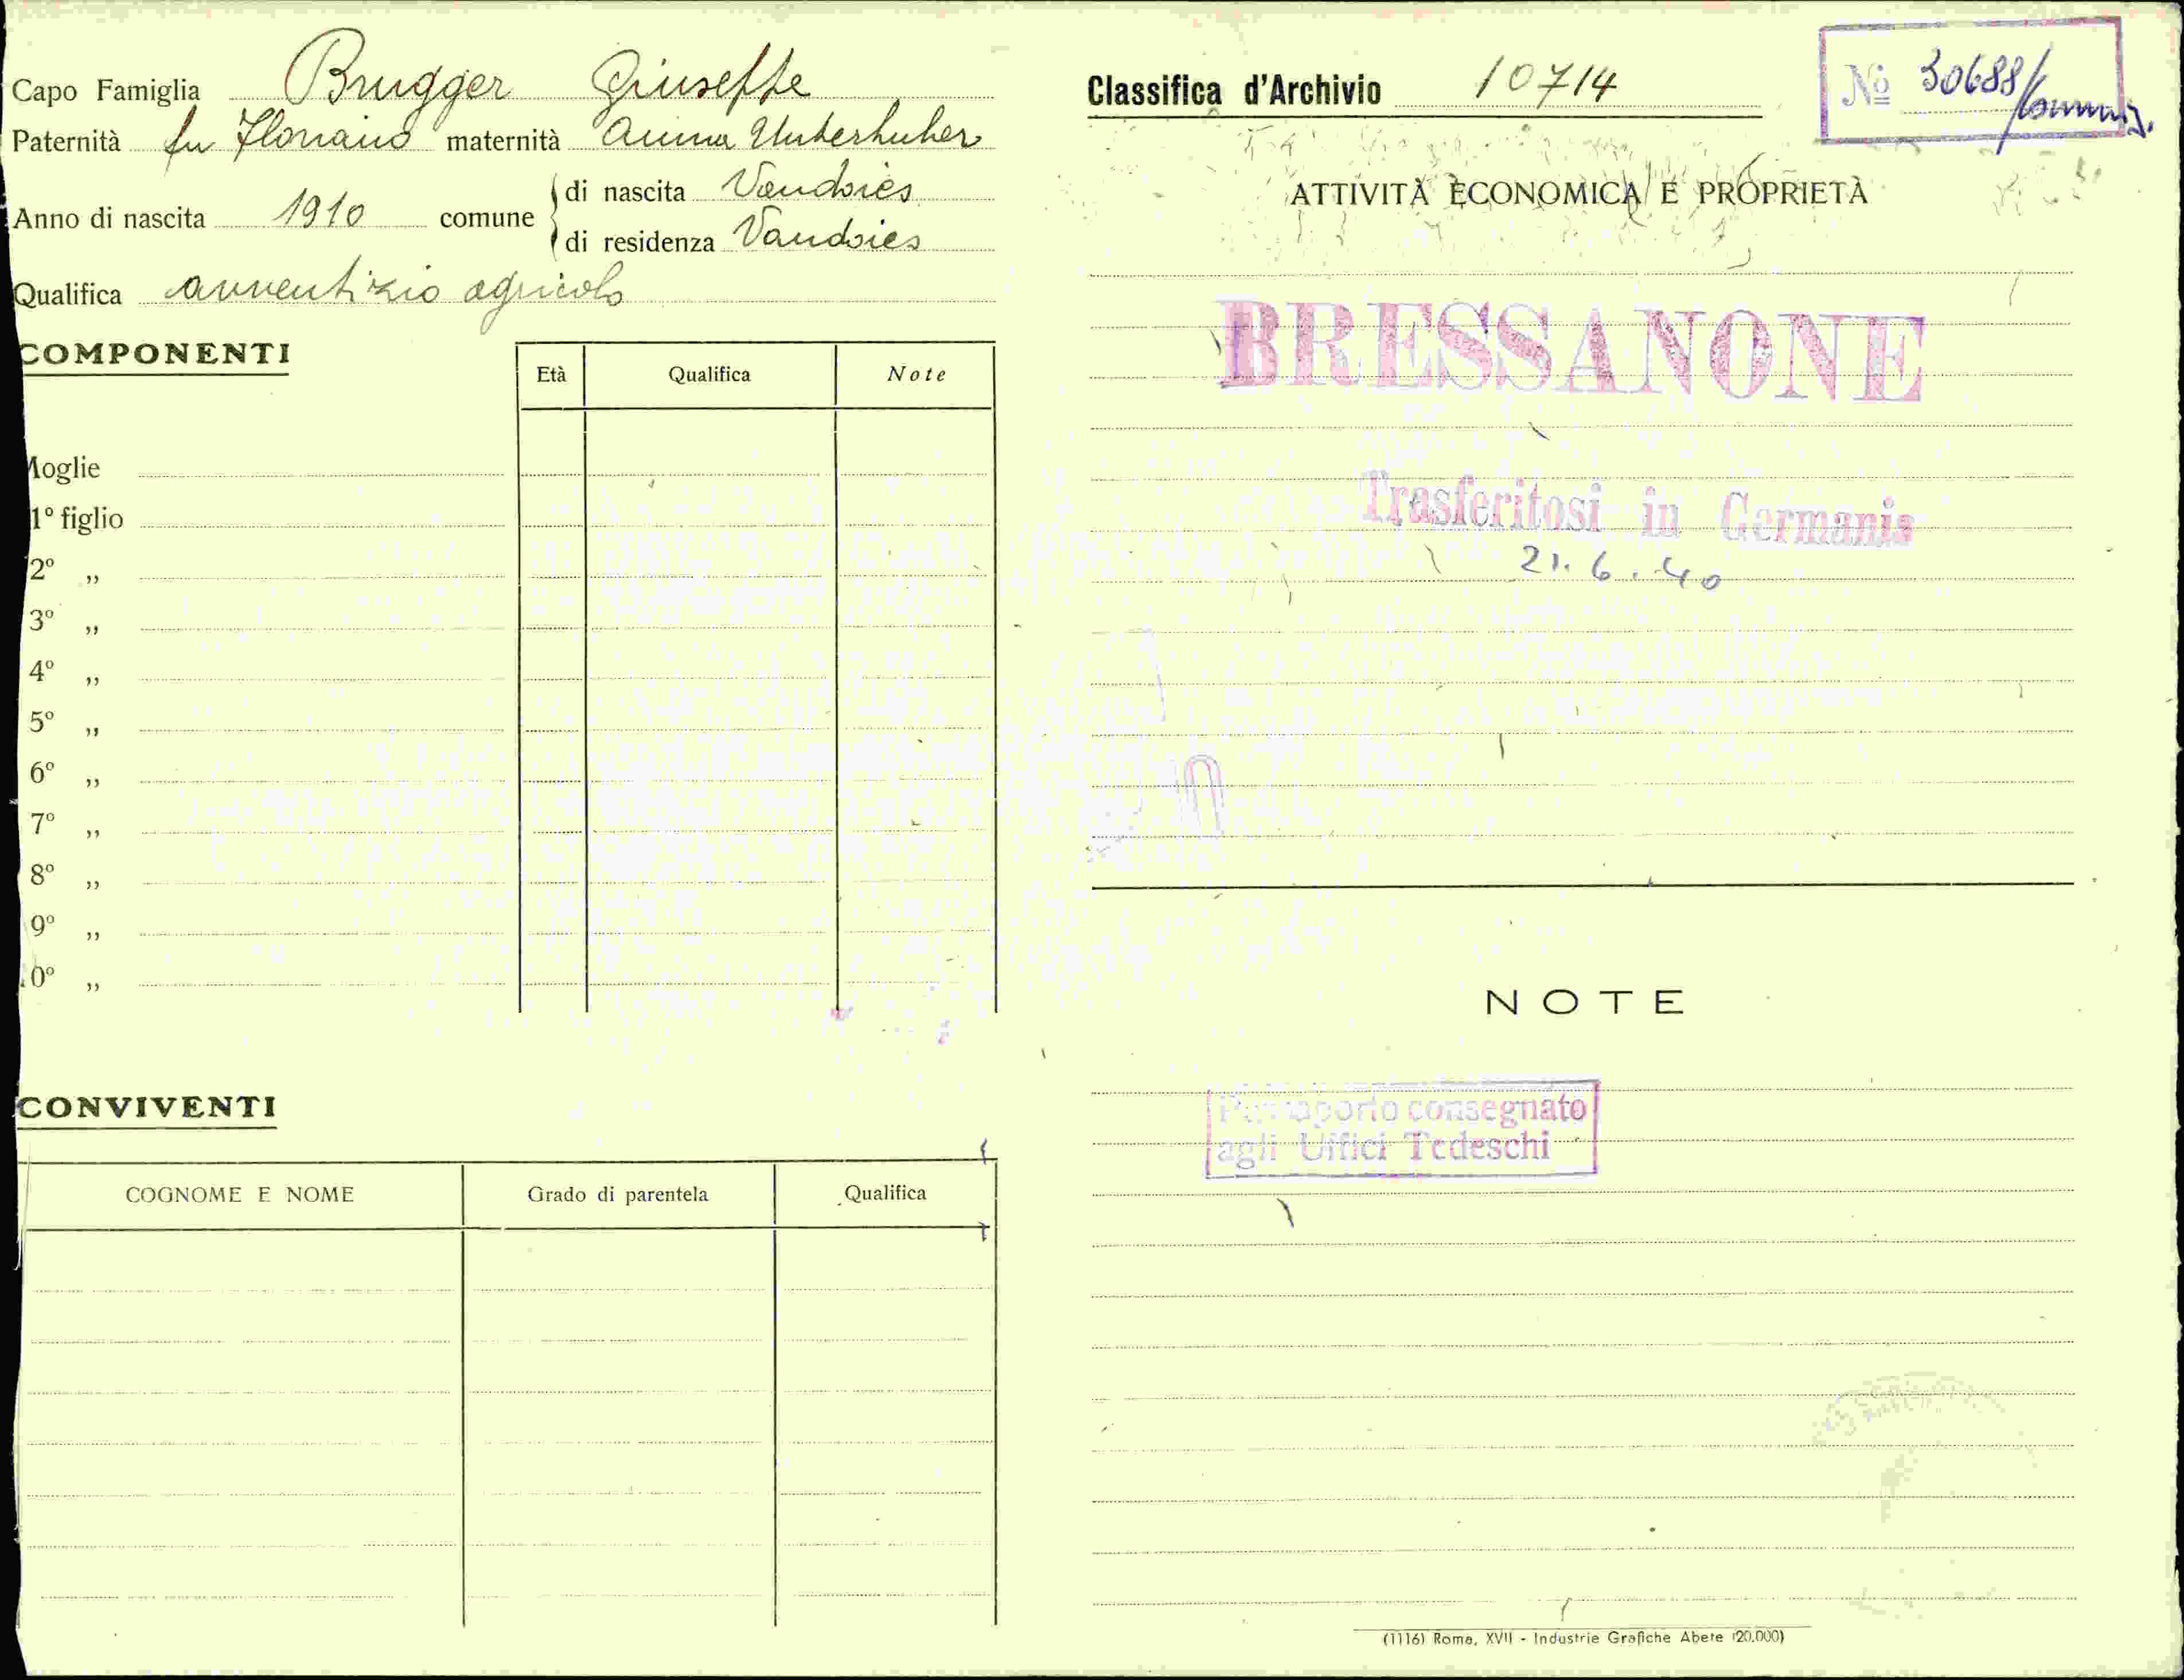 Capo Famiglia Brugger Giuseppe
Paternità fu Floriano maternità Anna Unterhuber
Anno di nascita 1910 comune
di nascita Vandoies
di residenza Vandoies
Qualifica avventizio agricolo
COMPONENTI
Età Qualifica Note
Moglie
1º figlio
2º „
3º „
4º „
5º „
6º „
7º „
8º „
9º „
0º „
CONVIVENTI
COGNOME E NOME Grado di parentela Qualifica
Classifica d'Archivio 10714
Nº 30688/
ATTIVITÀ ECONOMICA E PROPRIETÀ
BRESSANONE
Trasferitosi in Germania
21.6.40
NOTE
Passaporto consegnato
agli Uffici Tedeschi
(1116) Roma, XVII - Industrie Grafiche Abete (20.000)